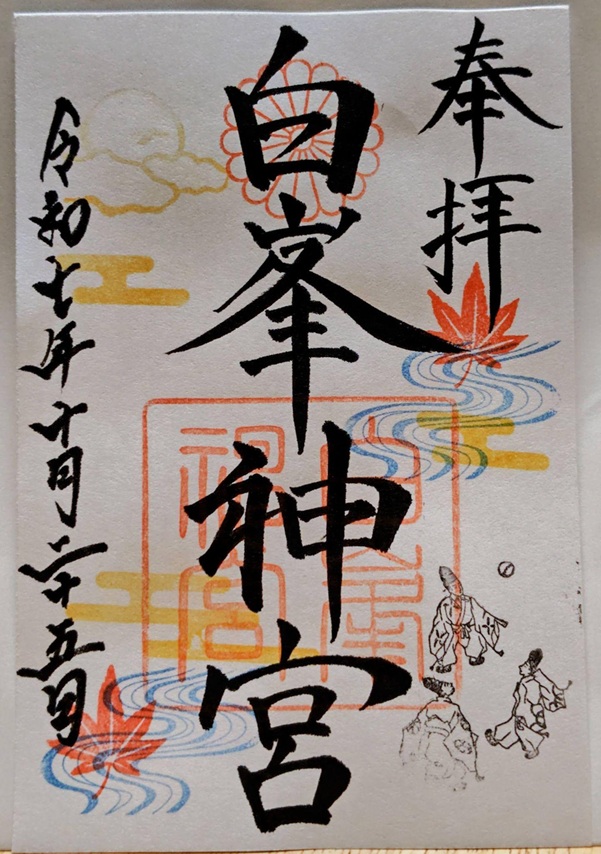 奉拝
白峯神宮
令和七年十月二十五日
白峯神宮